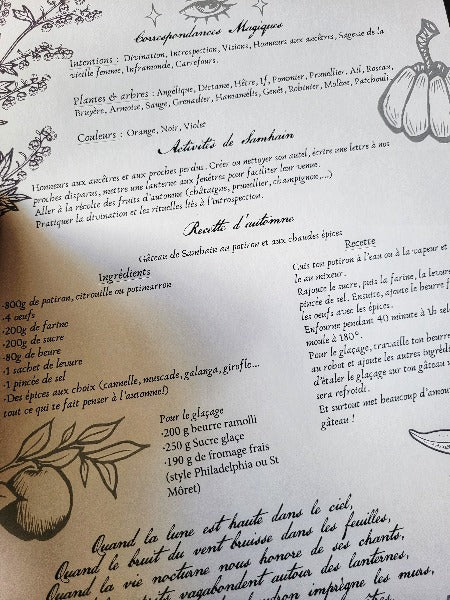 Correspondances Magiques
Intentions : Divination, Introspection, Visions, Honneurs aux ancêtres, Sagesse de la
vieille femme, Inframonde, Carrefours.
Plantes & arbres : Angélique, Dictame, Hêtre, If, Pommier, Prunellier, Ail, Roseau,
Bruyère, Armoise, Sauge, Grenadier, Hamamelis, Genêt, Robinier, Molène, Patchouli,
Couleurs : Orange, Noir, Violet
Activités de Samhain
Honneurs aux ancêtres et aux proches perdus. Créer ou nettoyer son autel, écrire une lettre à nos
proches disparus, mettre une lanterne aux fenêtres pour faciliter leur venue.
Aller à la récolte des fruits d'automne (châtaigne, prunellier, champignon,...)
Pratiquer la divination et les rituelles liés à l'introspection.
Recette d'automne
Gâteau de Samhain au potiron et aux chaudes épices
Ingrédients
·800g de potiron, citrouille ou potimarron
·4 oeufs
·200g de farine
·200g de sucre
·80g de beure
·1 sachet de levure
·1 pincée de sel
·Des épices au choix (cannelle, muscade, galanga, girofle...
tout ce qui te fait penser à l'automne!)
Pour le glaçage
·200 g beurre ramolli
·250 g Sucre glaçe
·190 g de fromage frais
(style Philadelphia ou St
Môret)
Recette
Cuis ton potiron à l'eau ou à la vapeur et
le au mixeur.
Rajoute le sucre, puis la farine, la levure
pincée de sel. Ensuite, ajoute le beurre
les oeufs avec les épices.
Enfourne pendant 40 minute à 1h
moule à 180°.
Pour le glaçage, travaille ton beurre
au robot et ajoute les autres
d'étaler le glaçage sur ton gâteau
sera refroidi.
Et surtout met beaucoup d'amour
gâteau !
Quand la lune est haute dans le ciel,
Quand le bruit du vent bruisse dans les feuilles,
Quand la vie nocturne nous honore de ses chants,
vagabondent autour des lanternes,
imprègne les murs,